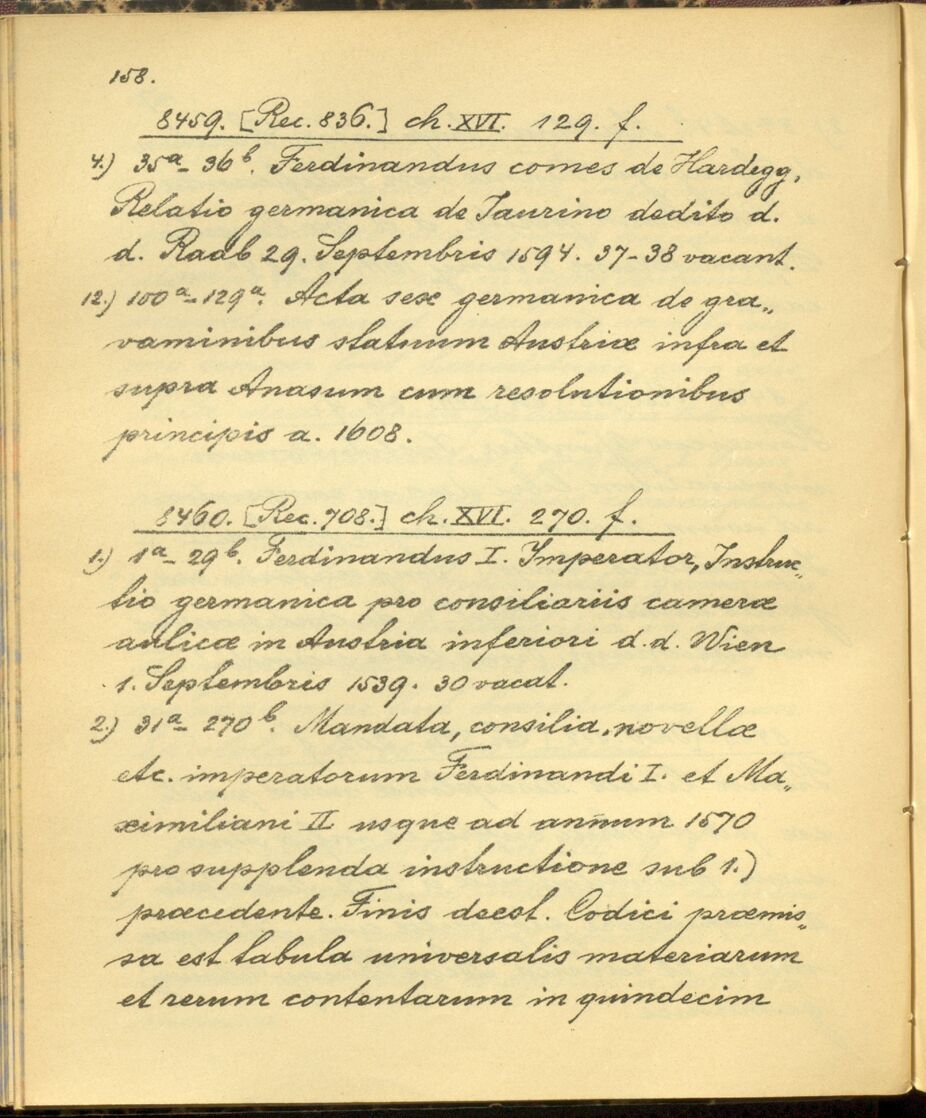 158.
8459. [Rec. 836.] ch. XVI. 129. f.
4.) 35a- 36b. Ferdinandus comes de Hardegg,
Relatio germanica de Taurino dedito d.
d. Raab 29. Septembris 1594. 37-38 vacant.
12.) 100a-129a. Acta sex germanica de gra„
vaminibus statuum Austriæ infra et
supra Anasum cum resolutionibus
principis a. 1608.
8460. [Rec. 708.] ch. XVI. 270. f.
1.) 1a- 29b. Ferdinandus I. Imperator, Instruc„
tio germanica pro consiliariis cameræ
aulicæ in Austria inferiori d. d. Wien
1. Septembris 1539. 30 vacat.
2.) 31a- 270b. Mandata, consilia, novellæ
etc. imperatorum Ferdinandi I. et Ma„
ximiliani II usque ad annum 1570
pro supplenda instructione sub 1.)
præcedente. Finis deest. Codici præmis„
sa est tabula universalis materiarum
et rerum contentarum in quindecim